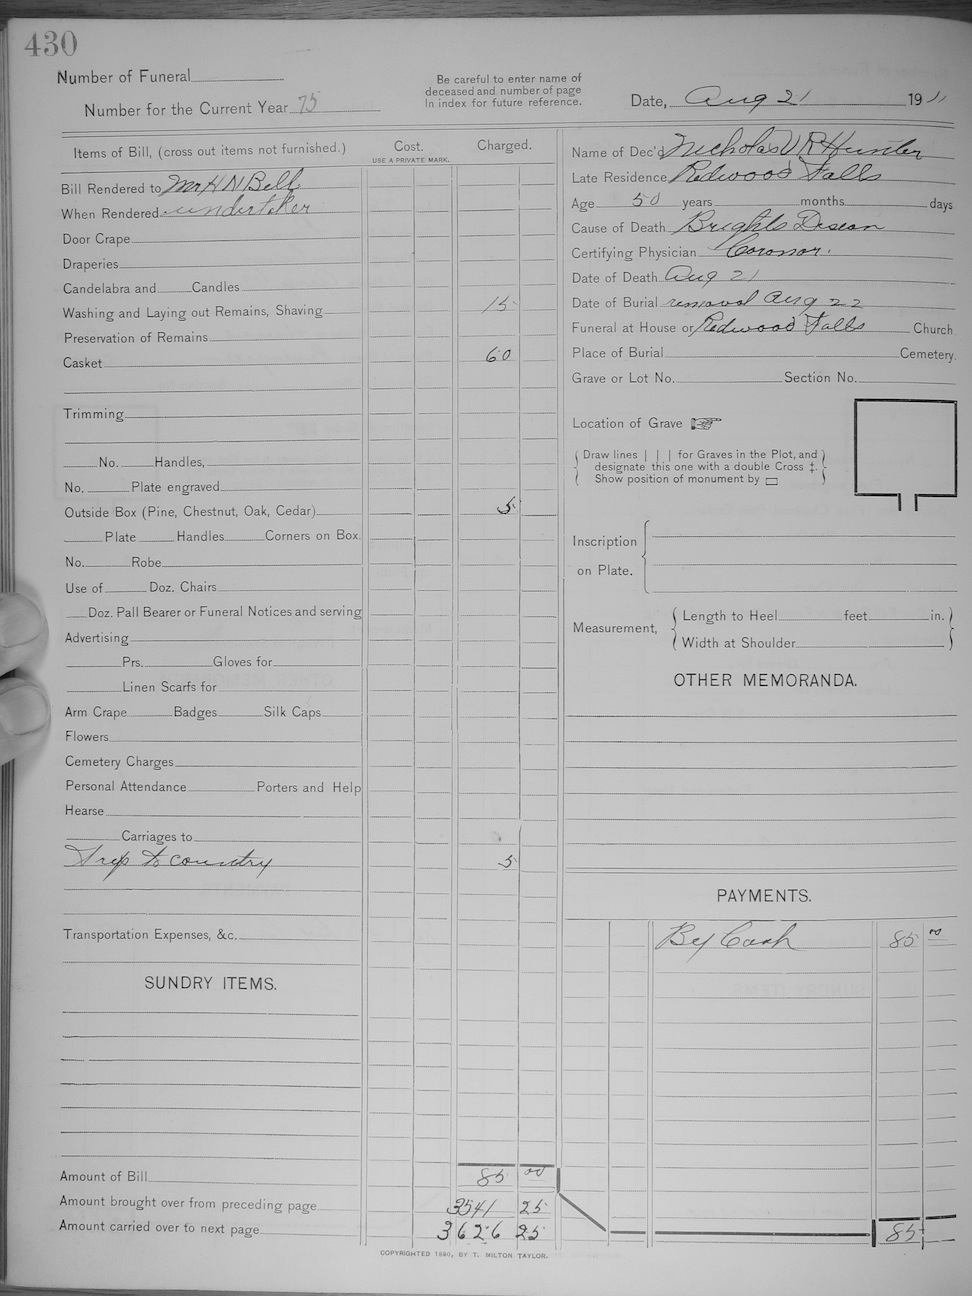 430
Number of Funeral
Number for the Current Year 75
Be careful to enter name of
deceased and number of page
In index for future reference.
Date, Aug 21 1911
Items of Bill, (cross out items not furnished.)
Cost.
USE A PRIVATE MARK.
Charged.
Bill Rendered to Mr H N Bell
When Rendered undertaker
Door Crape
Draperies
Candelabra and Candles
Washing and Laying out Remains, Shaving 15
Preservation of Remains
Casket 60
Trimming
No. Handles,
No. Plate engraved
Outside Box (Pine, Chestnut, Oak, Cedar) 5
Plate Handles Corners on Box
No. Robe
Use of Doz. Chairs
Doz. Pall Bearer or Funeral Notices and serving
Advertising
Prs. Gloves for
Linen Scarfs for
Arm Crape Badges Silk Caps
Flowers
Cemetery Charges
Personal Attendance Porters and Help
Hearse
Carriages to
Trip to country 5
Transportation Expenses, &c.
SUNDRY ITEMS.
Amount of Bill 85 00
Amount brought over from preceding page 3541 25
Amount carried over to next page 3626 25
Name of Dec'd Nicholas V R Hunter
Late Residence Redwood Falls
Age 50 years months days
Cause of Death Brights Disease
Certifying Physician Coronor.
Date of Death Aug 21
Date of Burial removal Aug 22
Funeral at House or Redwood Falls Church
Place of Burial Cemetery.
Grave or Lot No. Section No.
Location of Grave
Draw lines | | | for Graves in the Plot, and
designate this one with a double Cross ‡.
Show position of monument by
Inscription
on Plate.
Measurement,
Length to Heel feet in.
Width at Shoulder
OTHER MEMORANDA.
PAYMENTS.
By Cash 85 00
85
COPYRIGHTED 1890, BY T. MILTON TAYLOR.